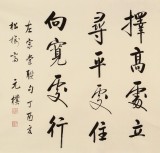 擇高處立
尋平處住
向寬處行
左宗棠聯句丁酉夏
松榆書
元樸